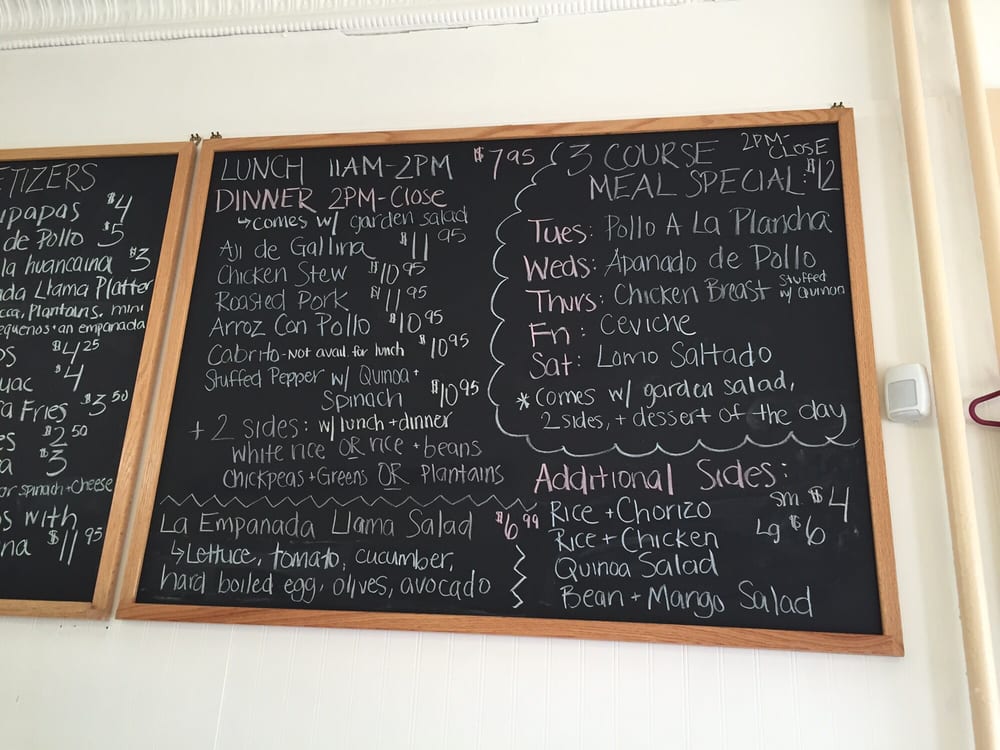 ETIZERS
upapas $4
de Pollo $5
la huancaina $3
ada Llama Platter
cca, Plantains, mini
equenos + an empanada
os $4 25
uac $4
a Fries $3 50
es $2 50
a $3
or spinach + cheese
os with
ina $11 95
LUNCH 11AM-2PM $7 95
DINNER 2PM-Close
↳ comes w/ garden salad
Aji de Gallina $11 95
Chicken Stew $10 95
Roasted Pork $11 95
Arroz Con Pollo $10 95
Cabrito - Not avail. for lunch $10 95
Stuffed Pepper w/ Quinoa +
Spinach $10 95
+ 2 sides: w/ lunch + dinner
white rice OR rice + beans
Chickpeas + Greens OR Plantains
La Empanada Llama Salad $6 99
↳ Lettuce, tomato, cucumber,
hard boiled egg, olives, avocado
3 COURSE 2PM-CLOSE
MEAL SPECIAL: $12
Tues: Pollo A La Plancha
Weds: Apanado de Pollo
Thurs: Chicken Breast Stuffed w/
Fri: Ceviche
Sat: Lomo Saltado
* Comes w/ garden salad,
2 sides, + dessert of the day
Additional Sides:
Rice + Chorizo sm. $4
Rice + Chicken Lg $6
Quinoa Salad
Bean + Mango Salad